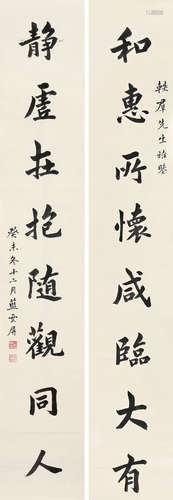 和惠所懷咸臨大有
群先生雅鑒
靜虛在抱隨觀同人
癸未冬十二月藍雲屏